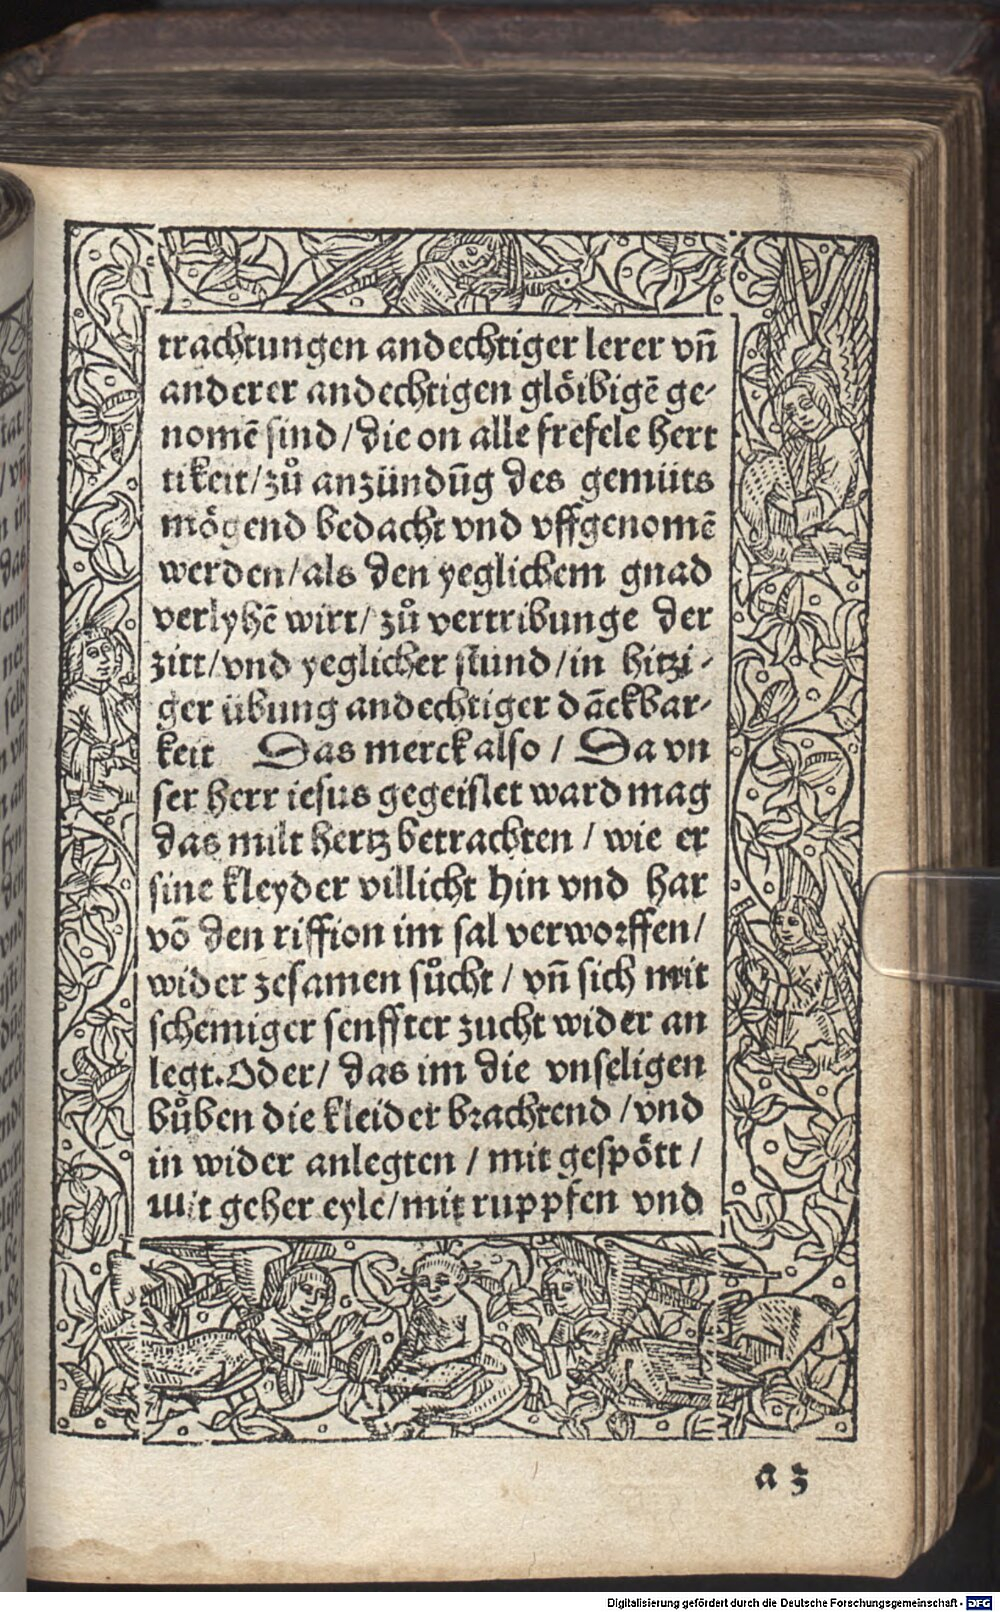 trachtungen andechtiger lerer vn̄
anderer andechtigen glöibigē ge-
nomē sind / die on alle frefele hert
tikeit / zů anzündūg des gemüts
mögend bedacht vnd vffgenomē
werden / als den yeglichem gnad
verlyhē wirt / zů vertribunge der
zitt / vnd yeglicher stund / in hitzi-
ger übung andechtiger dāckbar-
keit Das merck also / Da vn
ser herr iesus gegeislet ward mag
das milt hertz betrachten / wie er
sine kleyder villicht hin vnd har
vō den riffion im sal verworffen /
wider zesamen sůcht / vn̄ sich mit
schemiger senffter zucht wider an
legt. Oder / das im die vnseligen
bůben die kleider brachtend / vnd
in wider anlegten / mit gespött /
Mit geher eyle / mit ruppfen vnd
a 3
Digitalisierung gefördert durch die Deutsche Forschungsgemeinschaft - DFG